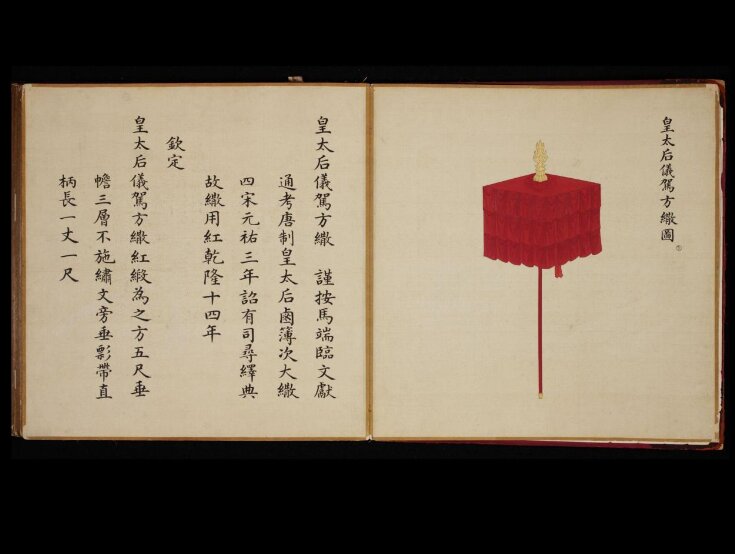 皇太后儀駕方繖圖
皇太后儀駕方繖 謹按馬端臨文獻
通考唐制皇太后鹵簿次大繖
四宋元祐三年詔有司尋繹典
故繖用紅乾隆十四年
欽定
皇太后儀駕方繖紅緞為之方五尺垂
幨三層不施繡文旁垂彩帶直
柄長一丈一尺